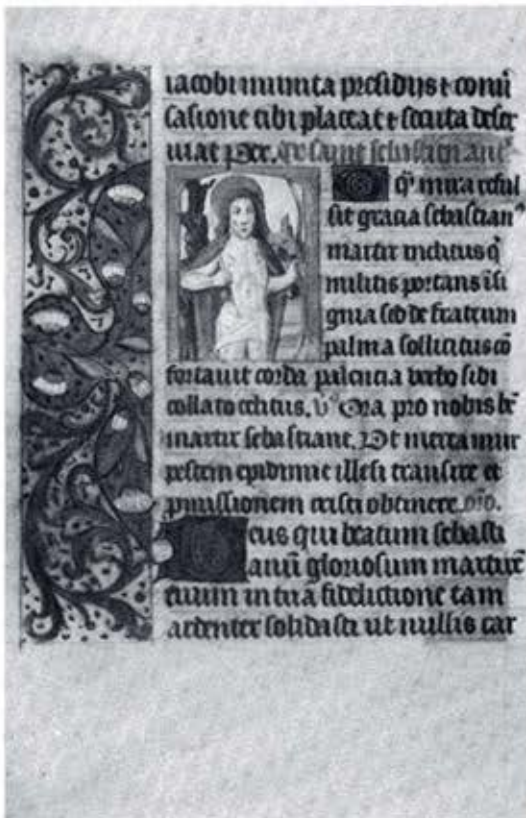 iacobi munita presidijs ⁊ conuͥ
sasione tibi placeat ⁊ secura deser
uiat Per. De saint sebastien ant͛
O q̄ mira reful
sit gracia sebastianꝰ
martir inclitus q̄
militis portans isi
gnia sed de fratrum
palma sollicitus cō
fortauit corda palencia verbo sibi
collato celitus. v̄s Ora pro nobis bē
martir sebastiane. Vt merea mur
pestem epidimie illesi transire et
pmissionem cristi obtinere. oro.
Deus qui beatum sebasti
anū gloriosum martirē
tuum in tua fide lictione tam
ardenter solidasti ut nullis car